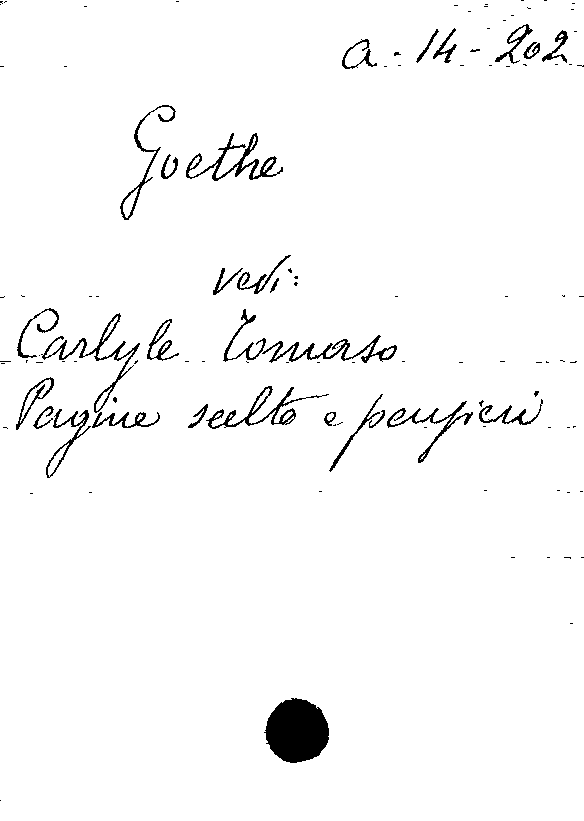 a-14-202
Goethe
vedi:
Carlyle Tomaso
Pagine scelte e pensieri